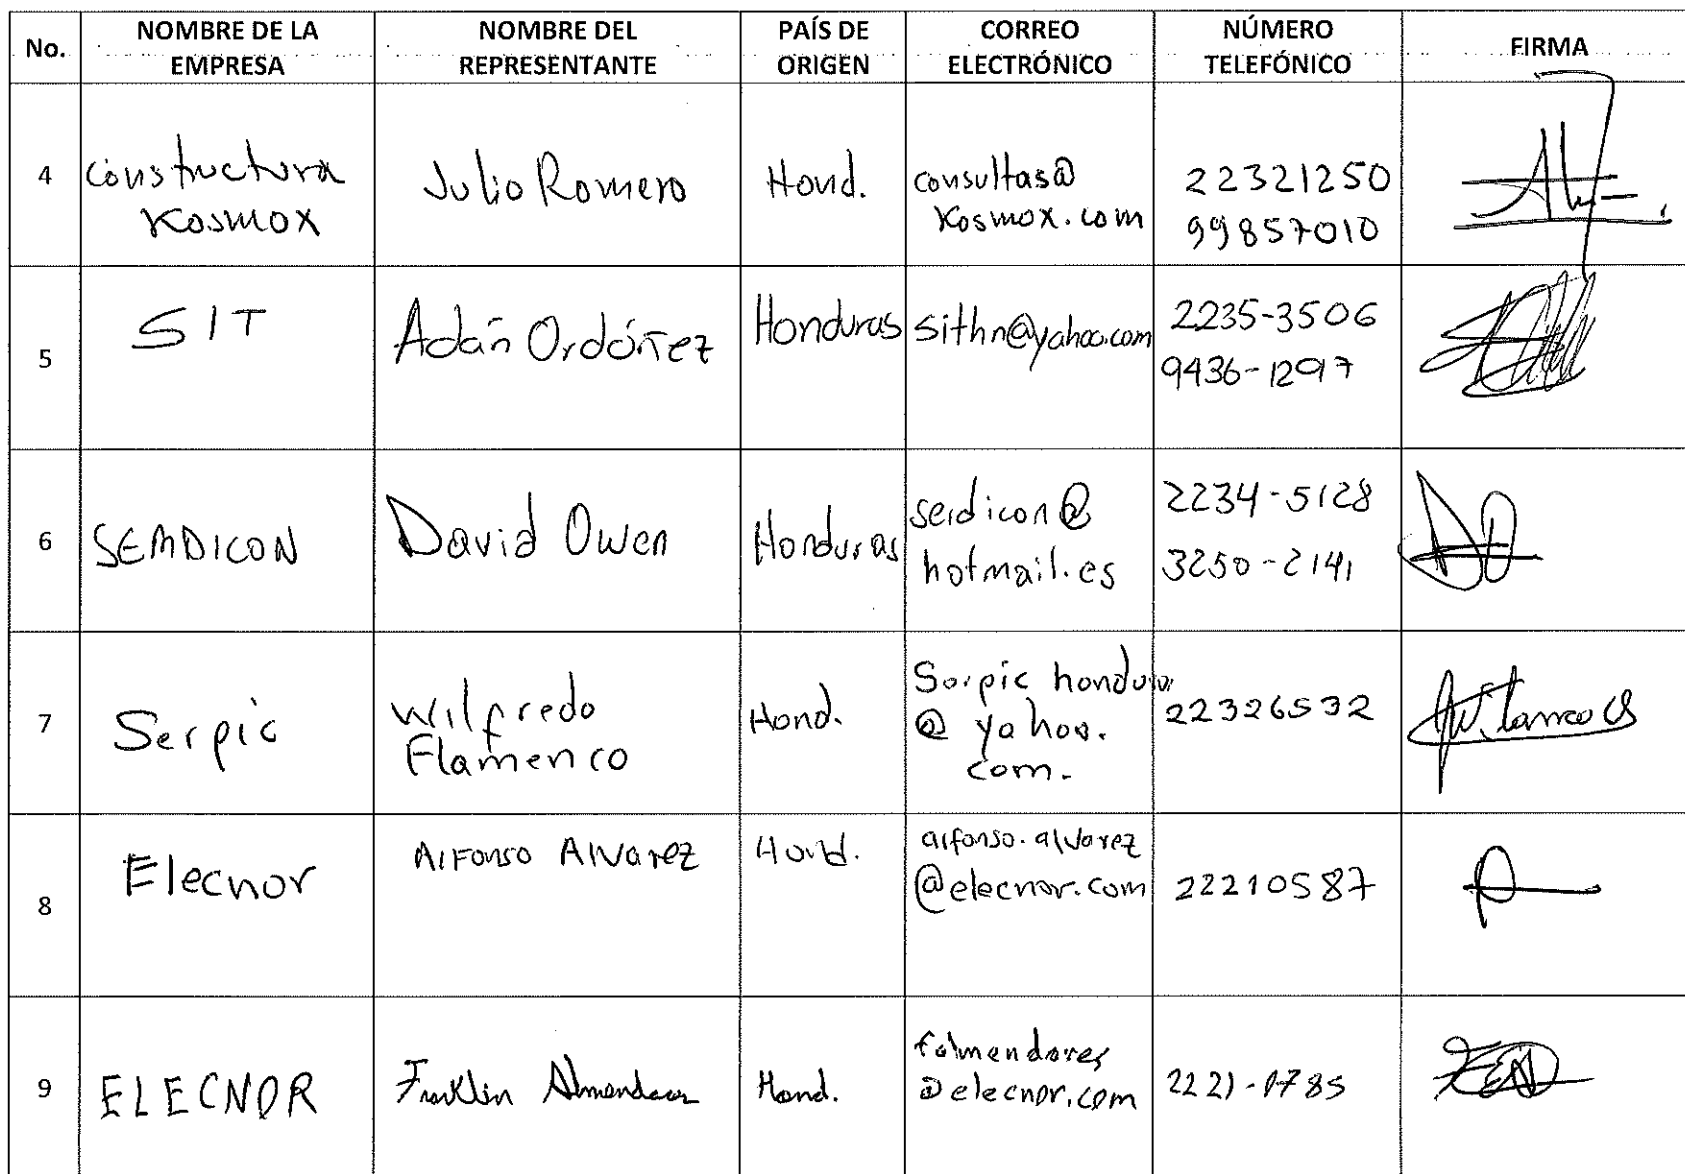 No. NOMBRE DE LA EMPRESA NOMBRE DEL REPRESENTANTE PAÍS DE ORIGEN CORREO ELECTRÓNICO NÚMERO TELEFÓNICO FIRMA
4
Constuctura
Kosmox
Julio Romero
Hond.
consultas@
Kosmox.com
22321250
99857010
5
SIT
Adán Ordóñez
Honduras
sithn@yahoo.com
2235-3506
9436-1297
6
David Owen
Honduras
hotmail.es
2234-5128
3250-2141
7
Serpic
Wilfredo
Flamenco
Hond.
@ yahoo.
com.
22326532
8
Elecnor
Alfonso Alvarez
Hond.
alfonso.alvarez
@elecnor.com
22210587
9
ELECNOR
Franklin
Hond.
falmendares
@elecnor.com